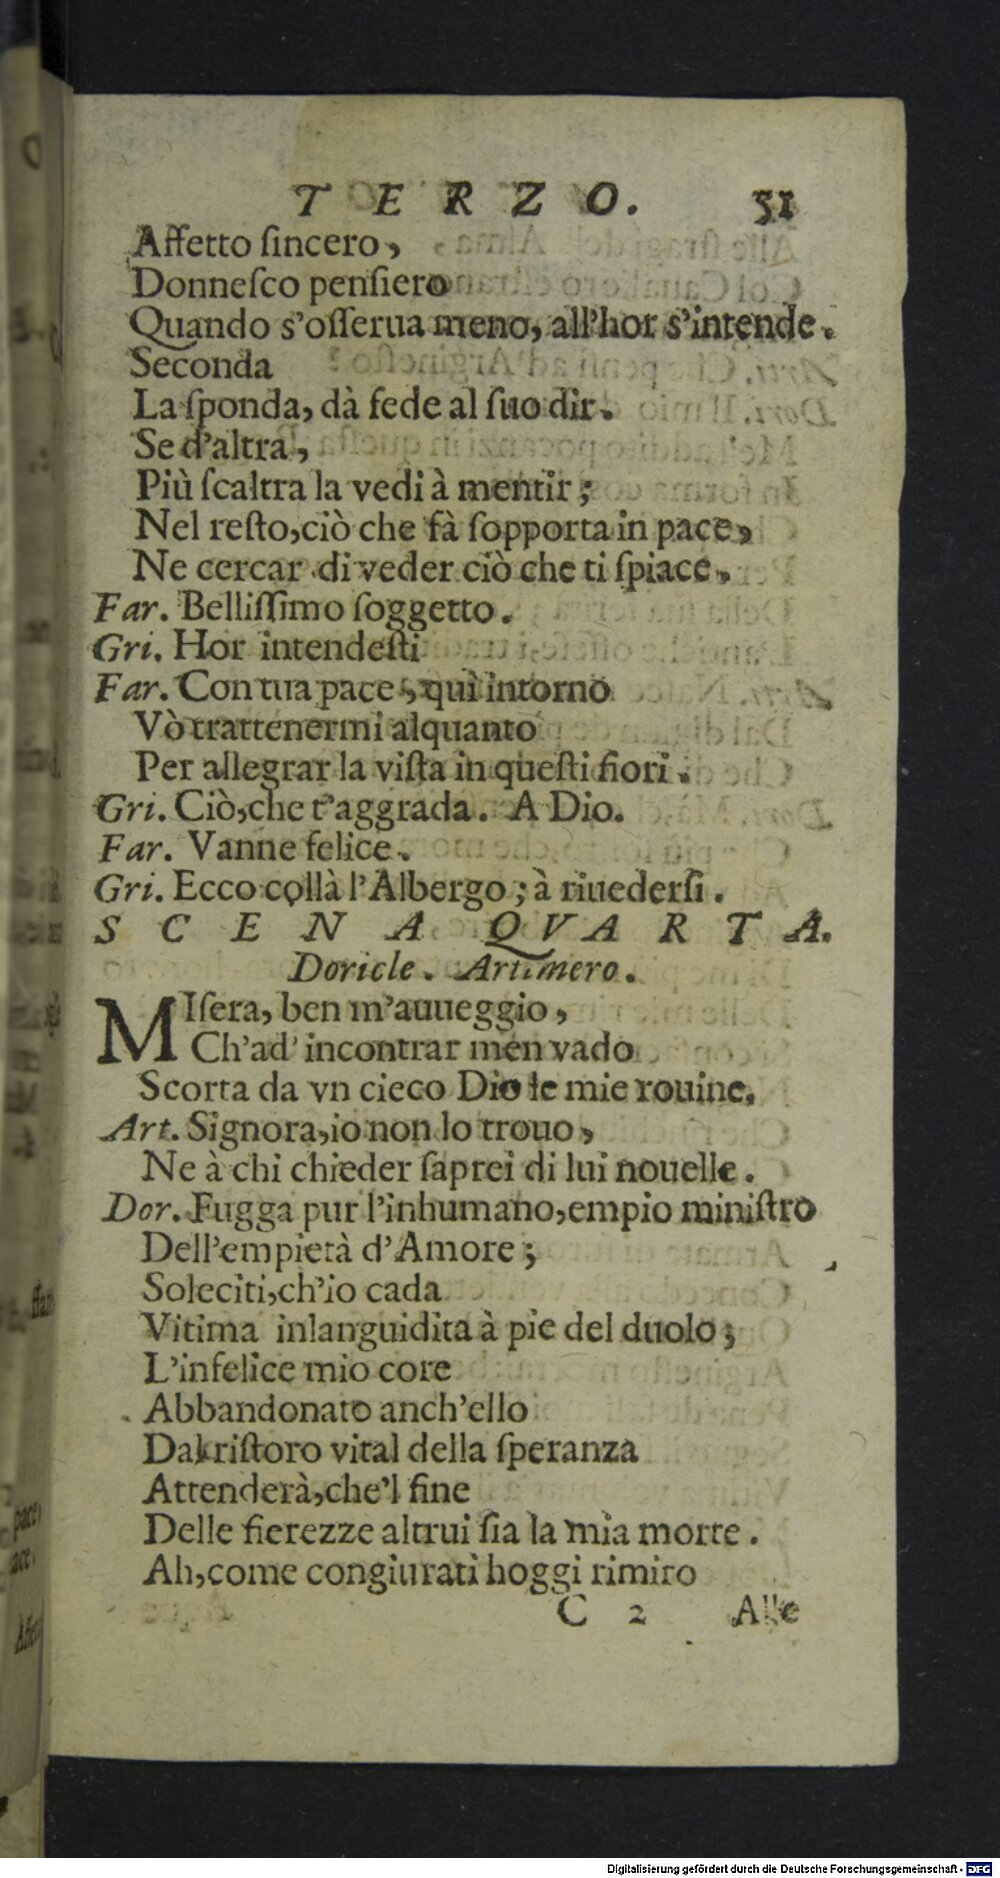 TERZO. 51
Affetto ſincero,
Donneſco penſiero
Quando s'oſſerua meno, all'hor s'intende.
Seconda
La ſponda, dà fede al ſuo dir.
Se d'altra,
Più ſcaltra la vedi à mentir;
Nel reſto, ciò che fà ſopporta in pace,
Ne cercar di veder ciò che ti ſpiace.
Far. Belliſſimo ſoggetto.
Gri. Hor intendeſti
Far. Con tua pace, quì intorno
Vò trattenermi alquanto
Per allegrar la viſta in queſti fiori.
Gri. Ciò, che t'aggrada. A Dio.
Far. Vanne felice.
Gri. Ecco collà l'Albergo; à riuederſi.
SCENA QVARTA.
Doricle. Artimero.
MIſera, ben m'auueggio,
Ch'ad' incontrar men vado
Scorta da vn cieco Dio le mie rouine.
Art. Signora, io non lo trouo,
Ne à chi chieder ſaprei di lui nouelle.
Dor. Fugga pur l'inhumano, empio miniſtro
Dell'empietà d'Amore;
Soleciti, ch'io cada
Vitima inlanguidita à pie del duolo;
L'infelice mio core
Abbandonato anch'ello
Dal riſtoro vital della ſperanza
Attenderà, che'l fine
Delle fierezze altrui ſia la mia morte.
Ah, come congiurati hoggi rimiro
C 2 Alle
Digitalisierung gefördert durch die Deutsche Forschungsgemeinschaft - DFG